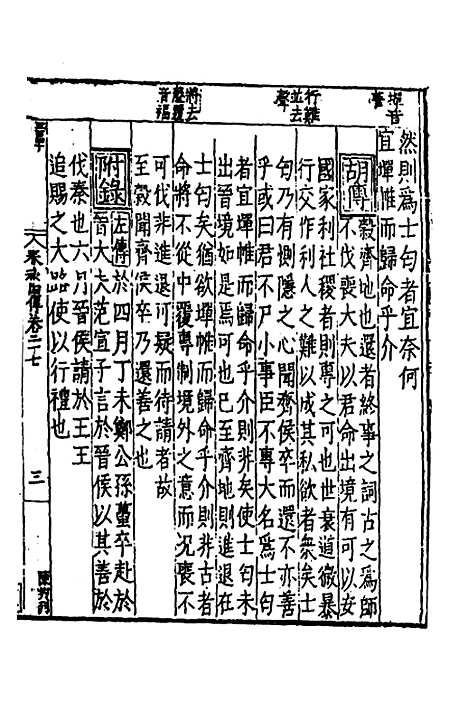 然則為士匄者宜奈何
宜墠帷而歸命乎介
胡傳 穀齊地也還者終事之詞古之為師
不伐喪大夫以君命出境有可以安
國家利社稷者則專之可也世衰道微暴
行交作利人之難以成其私欲者衆矣士
匄乃有惻隱之心聞齊侯卒而還不亦善
乎或曰君不尸小事臣不專大名為士匄
者宜墠帷而歸命乎介則非矣使士匄未
出晉境如是焉可也已至齊地則進退在
士匄矣猶欲墠帷而歸命乎介則非古者
命將不從中覆專制境外之意而况喪不
可伐非進退可疑而待請者故
至穀聞齊侯卒乃還善之也
附錄 左傳 於四月丁未鄭公孫蠆卒赴於
晉大夫范宣子言於晉侯以其善於
伐秦也六月晉侯請於王王
追賜之大路使以行禮也
墠音
行難
並去
聲
將去
聲覆
音福
春秋四傳卷二十七
三